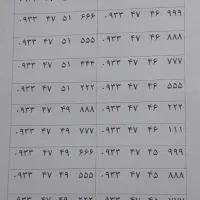 ۰۹۳۳ ۴۷ ۵۱ ۶۶۶ ۰۹۳۳ ۴۷ ۴۶ ۹۹۹
۰۹۳۳ ۴۷ ۵۱ ۵۵۵ ۰۹۳۳ ۴۷ ۴۶ ۸۸۸
۰۹۳۳ ۴۷ ۵۱ ۴۴۴ ۰۹۳۳ ۴۷ ۴۶ ۷۷۷
۰۹۳۳ ۴۷ ۵۱ ۲۲۲ ۰۹۳۳ ۴۷ ۴۶ ۵۵۵
۰۹۳۳ ۴۷ ۴۹ ۸۸۸ ۰۹۳۳ ۴۷ ۴۶ ۲۲۲
۰۹۳۳ ۴۷ ۴۹ ۷۷۷ ۰۹۳۳ ۴۷ ۴۶ ۱۱۱
۰۹۳۳ ۴۷ ۴۹ ۶۶۶ ۰۹۳۳ ۴۷ ۴۵ ۹۹۹
۰۹۳۳ ۴۷ ۴۹ ۵۵۵ ۰۹۳۳ ۴۷ ۴۵ ۸۸۸